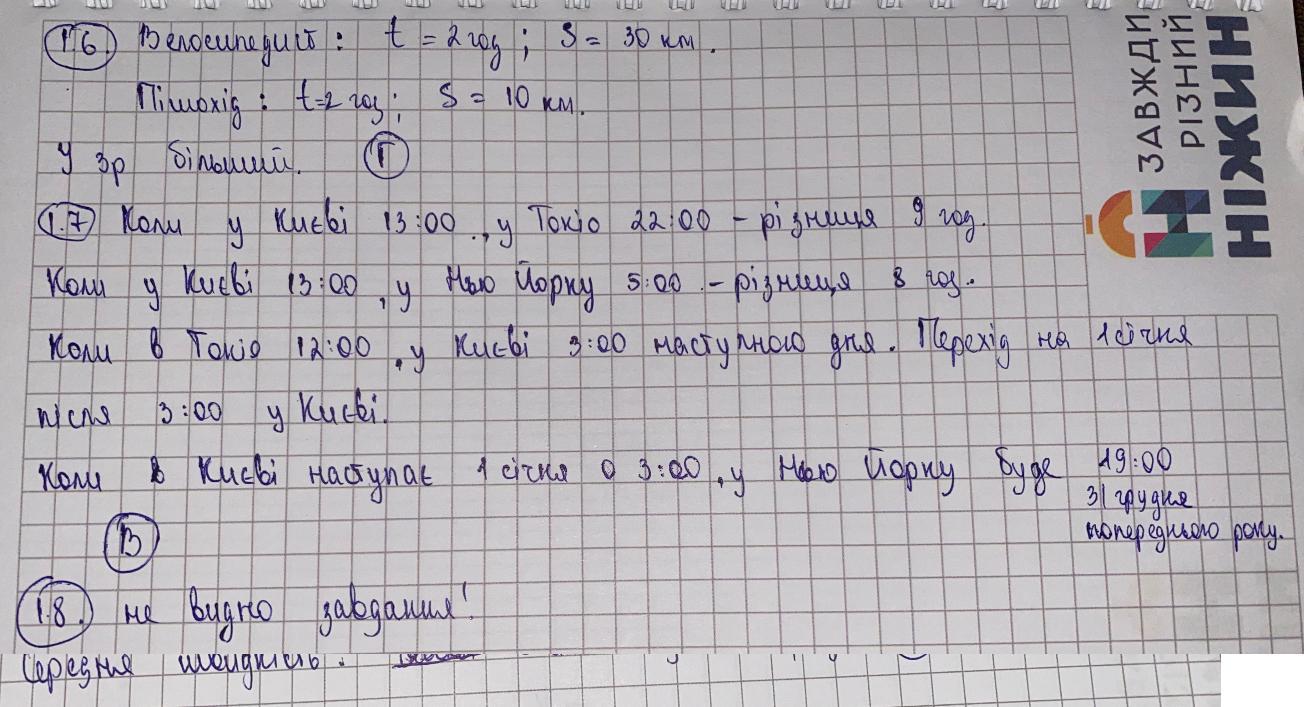 1.6. Велосипедист: t = 2 год; S = 30 км.
Пішохід: t=2 год; S = 10 км.
У 3р більший. Г
1.7 Коли у Києві 13:00, у Токіо 22:00 - різниця 9 год.
Коли у Києві 13:00, у Нью Йорку 5:00 - різниця 8 год.
Коли в Токіо 12:00, у Києві 3:00 наступного дня. Перехід на 1 січня
після 3:00 у Києві.
Коли в Києві наступає 1 січня о 3:00, у Нью Йорку буде 19:00
31 грудня
попереднього року.
В
1.8. не видно завдання!
Середня швидкість.
ЗАВЖДИ
РІЗНИЙ
НІЖИН